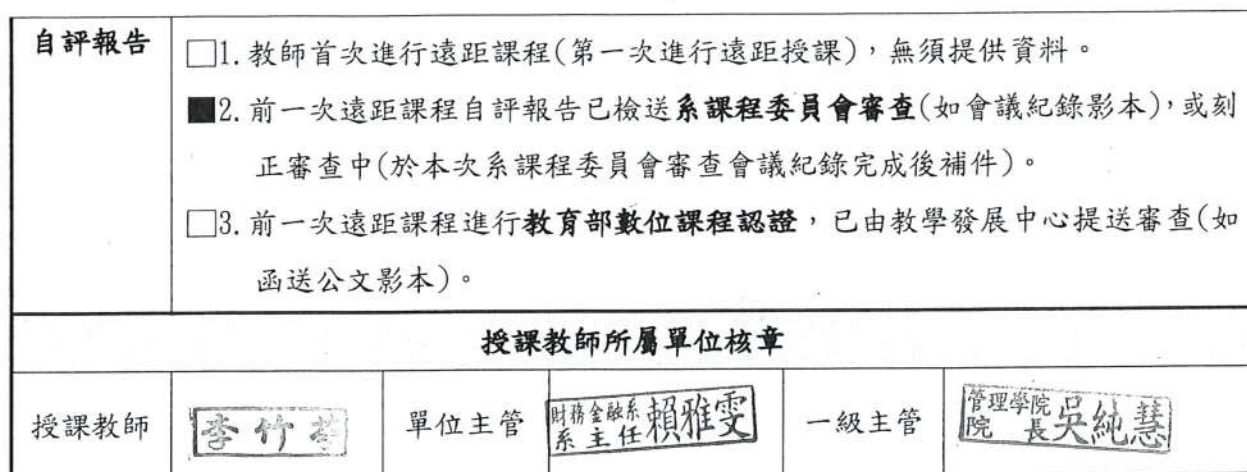 自評報告
□1.教師首次進行遠距課程(第一次進行遠距授課)，無須提供資料。
■2.前一次遠距課程自評報告已檢送系課程委員會審查(如會議紀錄影本)，或刻
正審查中(於本次系課程委員會審查會議紀錄完成後補件)。
□3.前一次遠距課程進行教育部數位課程認證，已由教學發展中心提送審查(如
函送公文影本)。
授課教師所屬單位核章
授課教師
李竹
單位主管
財務金融系
系主任賴雅雯
一級主管
管理學院
院長吳純慧